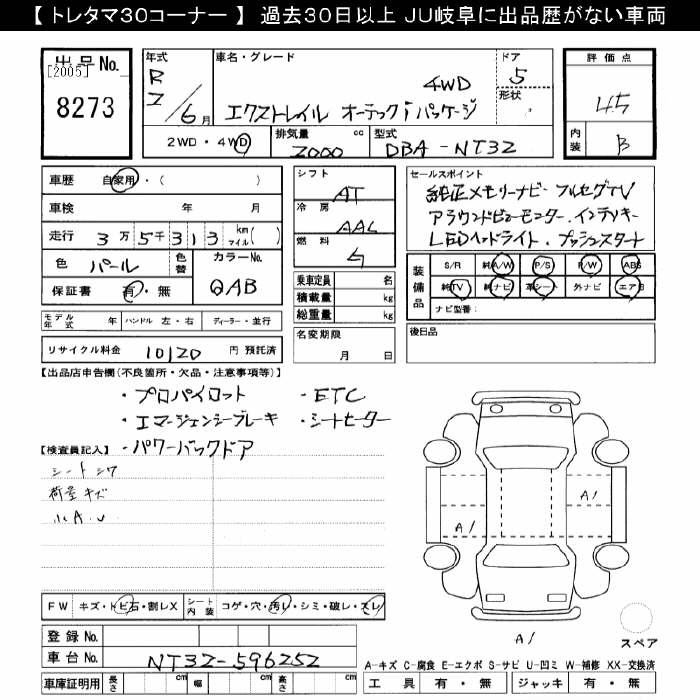 【 トレタマ30コーナー 】 過去30日以上 JU岐阜に出品歴がない車両
出品 No. 年式 車名・グレード ドア 評価点
[2005] R 4WD 5
8273 2/6月 エクストレイル オーテック i パッケージ 形状 4.5
2WD・4WD 排気量 2000 cc 型式 DBA-NT32 内装 B
車歴 自家用・( ) シフト AT セールスポイント
車検 年 月 冷房 AAC 純正メモリーナビ フルセグTV
走行 3万5千313 km マイル( ) アラウンドビューモニター.インテリキー
色 パール 色替 カラーNo. QAB 燃料 ガ LEDヘッドライト.プッシュスタート
保証書 有・無 乗車定員 名 装備品 S/R 純A/W P/S P/W ABS
積載量 kg 純TV 純ナビ 革シート 外ナビ エアB
総重量 kg ナビ型番:
モデル年式 年 ハンドル 左・右 ディーラー・並行 名変期限 月 日 後日品
リサイクル料金 10120 円 預託済
【出品店申告欄(不良箇所・欠品・注意事項等)】
・プロパイロット ・ETC
・エマージェンシーブレーキ ・シートヒーター
・パワーバックドア
【検査員記入】
シートシワ
荷室キズ
小A.U
A1
A1
A1
スペア
FW キズ・トビ石・割レX シート内装 コゲ・穴・汚レ・シミ・破レ・スレ
登録 No.
車台 No. NT32-596252
A-キズ C-腐食 E-エクボ S-サビ U-凹ミ W-補修 XX-交換済
車庫証明用 長さ cm 幅 cm 高さ cm 工具 有・無 ジャッキ 有・無